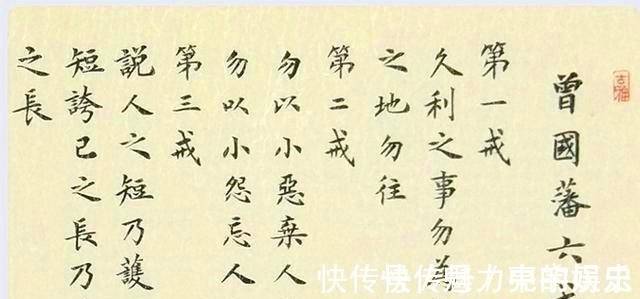 曾國藩六
第一戒
久利之事勿為
之地勿往
第二戒
勿以小惡棄人
勿以小怨忘人
第三戒
説人之短乃護
短誇己之長乃
之長
快传